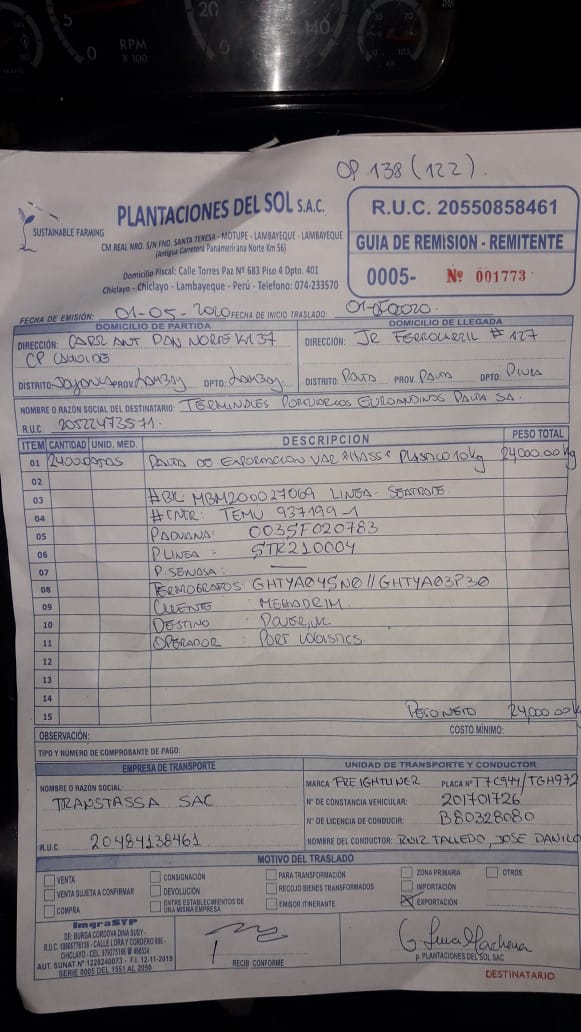 20
140
5
0
RPM
X 100
OP 138 (122).
SUSTAINABLE FARMING
PLANTACIONES DEL SOL S.A.C.
CM REAL NRO. S/N FND. SANTA TERESA - MOTUPE - LAMBAYEQUE - LAMBAYEQUE
(Antigua Carretera Panamericana Norte Km 56)
Domicilio Fiscal: Calle Torres Paz Nº 683 Piso 4 Dpto. 401
Chiclayo - Chiclayo - Lambayeque - Perú - Telefono: 074-233570
R.U.C. 20550858461
GUIA DE REMISION - REMITENTE
0005- Nº 001773
FECHA DE EMISIÓN: 01-05-2020 FECHA DE INICIO TRASLADO:
DOMICILIO DE PARTIDA
DIRECCIÓN: CARR ANT PAN NORTE KM 37
CP
DISTRITO: PROV. DPTO:
DOMICILIO DE LLEGADA
DIRECCIÓN: JR FERROCARRIL # 127
DISTRITO. PAITA PROV. PAITA DPTO: PIURA
NOMBRE O RAZÓN SOCIAL DEL DESTINATARIO: TERMINALES PORTUARIOS EUROANDINOS PAITA SA.
R.U.C. 20522473571
ITEM CANTIDAD UNID. MED. DESCRIPCION PESO TOTAL
01 PALTA DE EXPORTACION VAR "HASS" PLASTICO 10 kg 24000.00 kg
02
03 #BK MBM200027069 LINEA. SEATRADE
04 #CNTR: TEMU 937199-1
05 P.ADUANA: 003SF020783
06 P.LINEA: STR210004
07 P.SENASA: —
08 TERMOGRAFOS: GHTYA045N0//GHTYA03P30
09 CLIENTE : MEHADRIN
10 DESTINO :
11 OPERADOR : PORT LOGISTICS.
12
13
14
15 PESO NETO 24,000.00 kg
OBSERVACIÓN: COSTO MÍNIMO:
TIPO Y NÚMERO DE COMPROBANTE DE PAGO:
EMPRESA DE TRANSPORTE
NOMBRE O RAZÓN SOCIAL:
TRANSTASSA SAC
R.U.C. 20484138461
UNIDAD DE TRANSPORTE Y CONDUCTOR
MARCA FREIGHTLINER PLACA Nº T7C944/TGH972
N° DE CONSTANCIA VEHICULAR: 201701726
N° DE LICENCIA DE CONDUCIR: B80328080
NOMBRE DEL CONDUCTOR: RUIZ TALLEDO, JOSE DANILO
MOTIVO DEL TRASLADO
VENTA
VENTA SUJETA A CONFIRMAR
COMPRA
CONSIGNACIÓN
DEVOLUCIÓN
ENTRE ESTABLECIMIENTOS DE
UNA MISMA EMPRESA
PARA TRANSFORMACIÓN
RECOJO BIENES TRANSFORMADOS
EMISOR ITINERANTE
ZONA PRIMARIA
IMPORTACIÓN
EXPORTACIÓN
OTROS
ImgraSYP
DE: BURGA CORDOVA DINA SUSY -
CHICLAYO - CEL.
AUT. SUNAT Nº 1228240073 - F.I. 12-11-2019
SERIE 0005 DEL 1551 AL 2050
RECIB CONFORME
p. PLANTACIONES DEL SOL SAC
DESTINATARIO